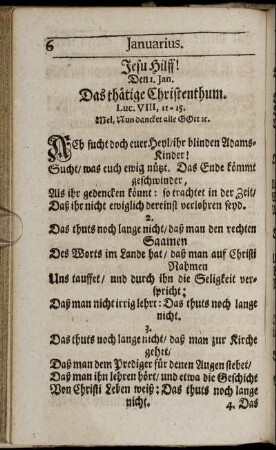 6 Januarius.
Jesu Hilff!
Den 1. Jan.
Das thätige Christenthum.
Luc. VIII, 11-15.
Mel, Nun dancket alle GOtt ꝛc.
ACh sucht doch euer Heyl/ ihr blinden Adams-
Kinder!
Sucht/ was euch ewig nützt. Das Ende kömmt
geschwinder,
Als ihr gedencken könnt: so trachtet in der Zeit/
Daß ihr nicht ewiglich dereinst verlohren seyd.
2.
Das thuts noch lange nicht/ daß man den rechten
Saamen
Des Worts im Lande hat/ daß man auf Christi
Nahmen
Uns tauffet/ und durch ihn die Seligkeit ver-
spricht;
Daß man nicht irrig lehrt: Das thuts noch lange
nicht.
3.
Das thuts noch lange nicht/ daß man zur Kirche
gehet/
Daß man dem Prediger für denen Augen stehet/
Daß man ihn lehren hört/ und etwa die Geschicht
Von Christi Leben weiß: Das thuts noch lange
nicht. 4. Das